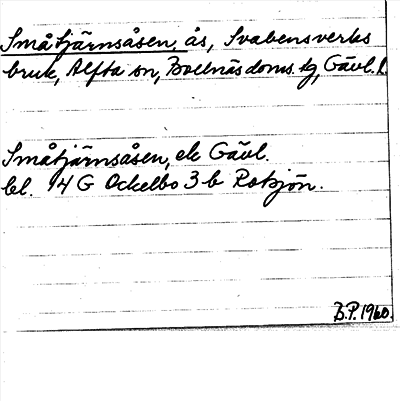 Småtjärnsåsen, ås, Svabensverks
bruk, Alfta sn, Bollnäs doms. tg, Gävl. l.
Småtjärnsåsen, ek Gävl.
bl. 14 G Ockelbo 3 b Rotsjön.
B.P. 1960.